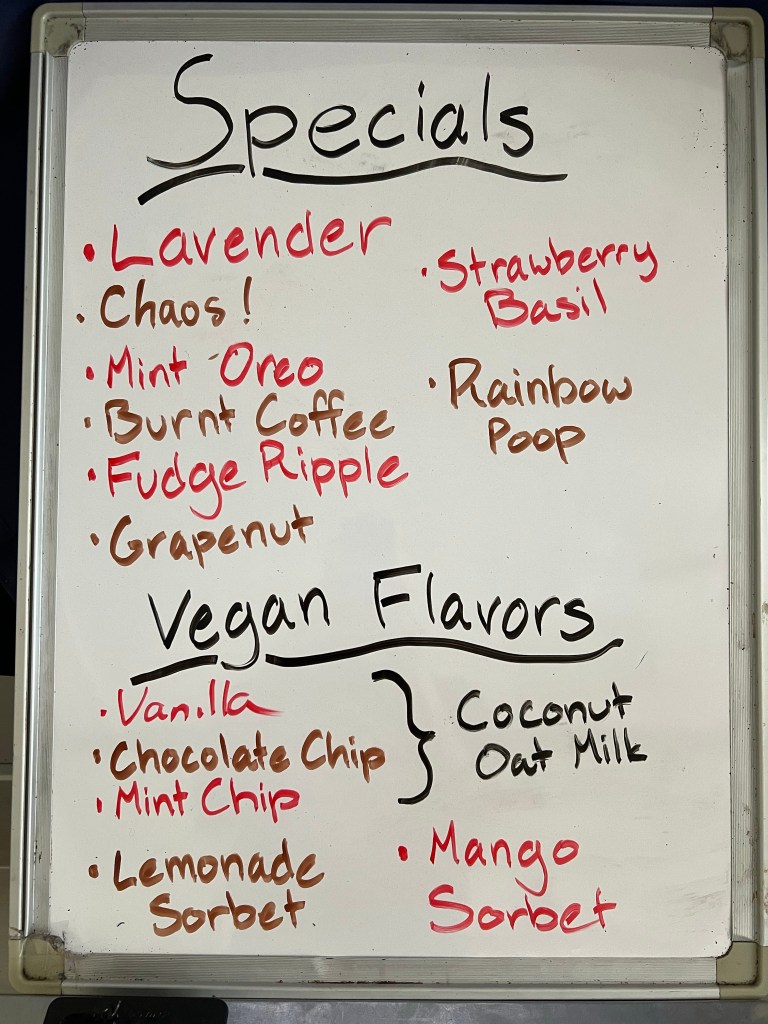 Specials
• Lavender
• Chaos!
• Mint Oreo
• Burnt Coffee
• Fudge Ripple
• Grapenut
• Strawberry
Basil
• Rainbow
Poop
Vegan Flavors
• Vanilla
• Chocolate Chip
• Mint Chip
} Coconut
Oat Milk
• Lemonade
Sorbet
• Mango
Sorbet